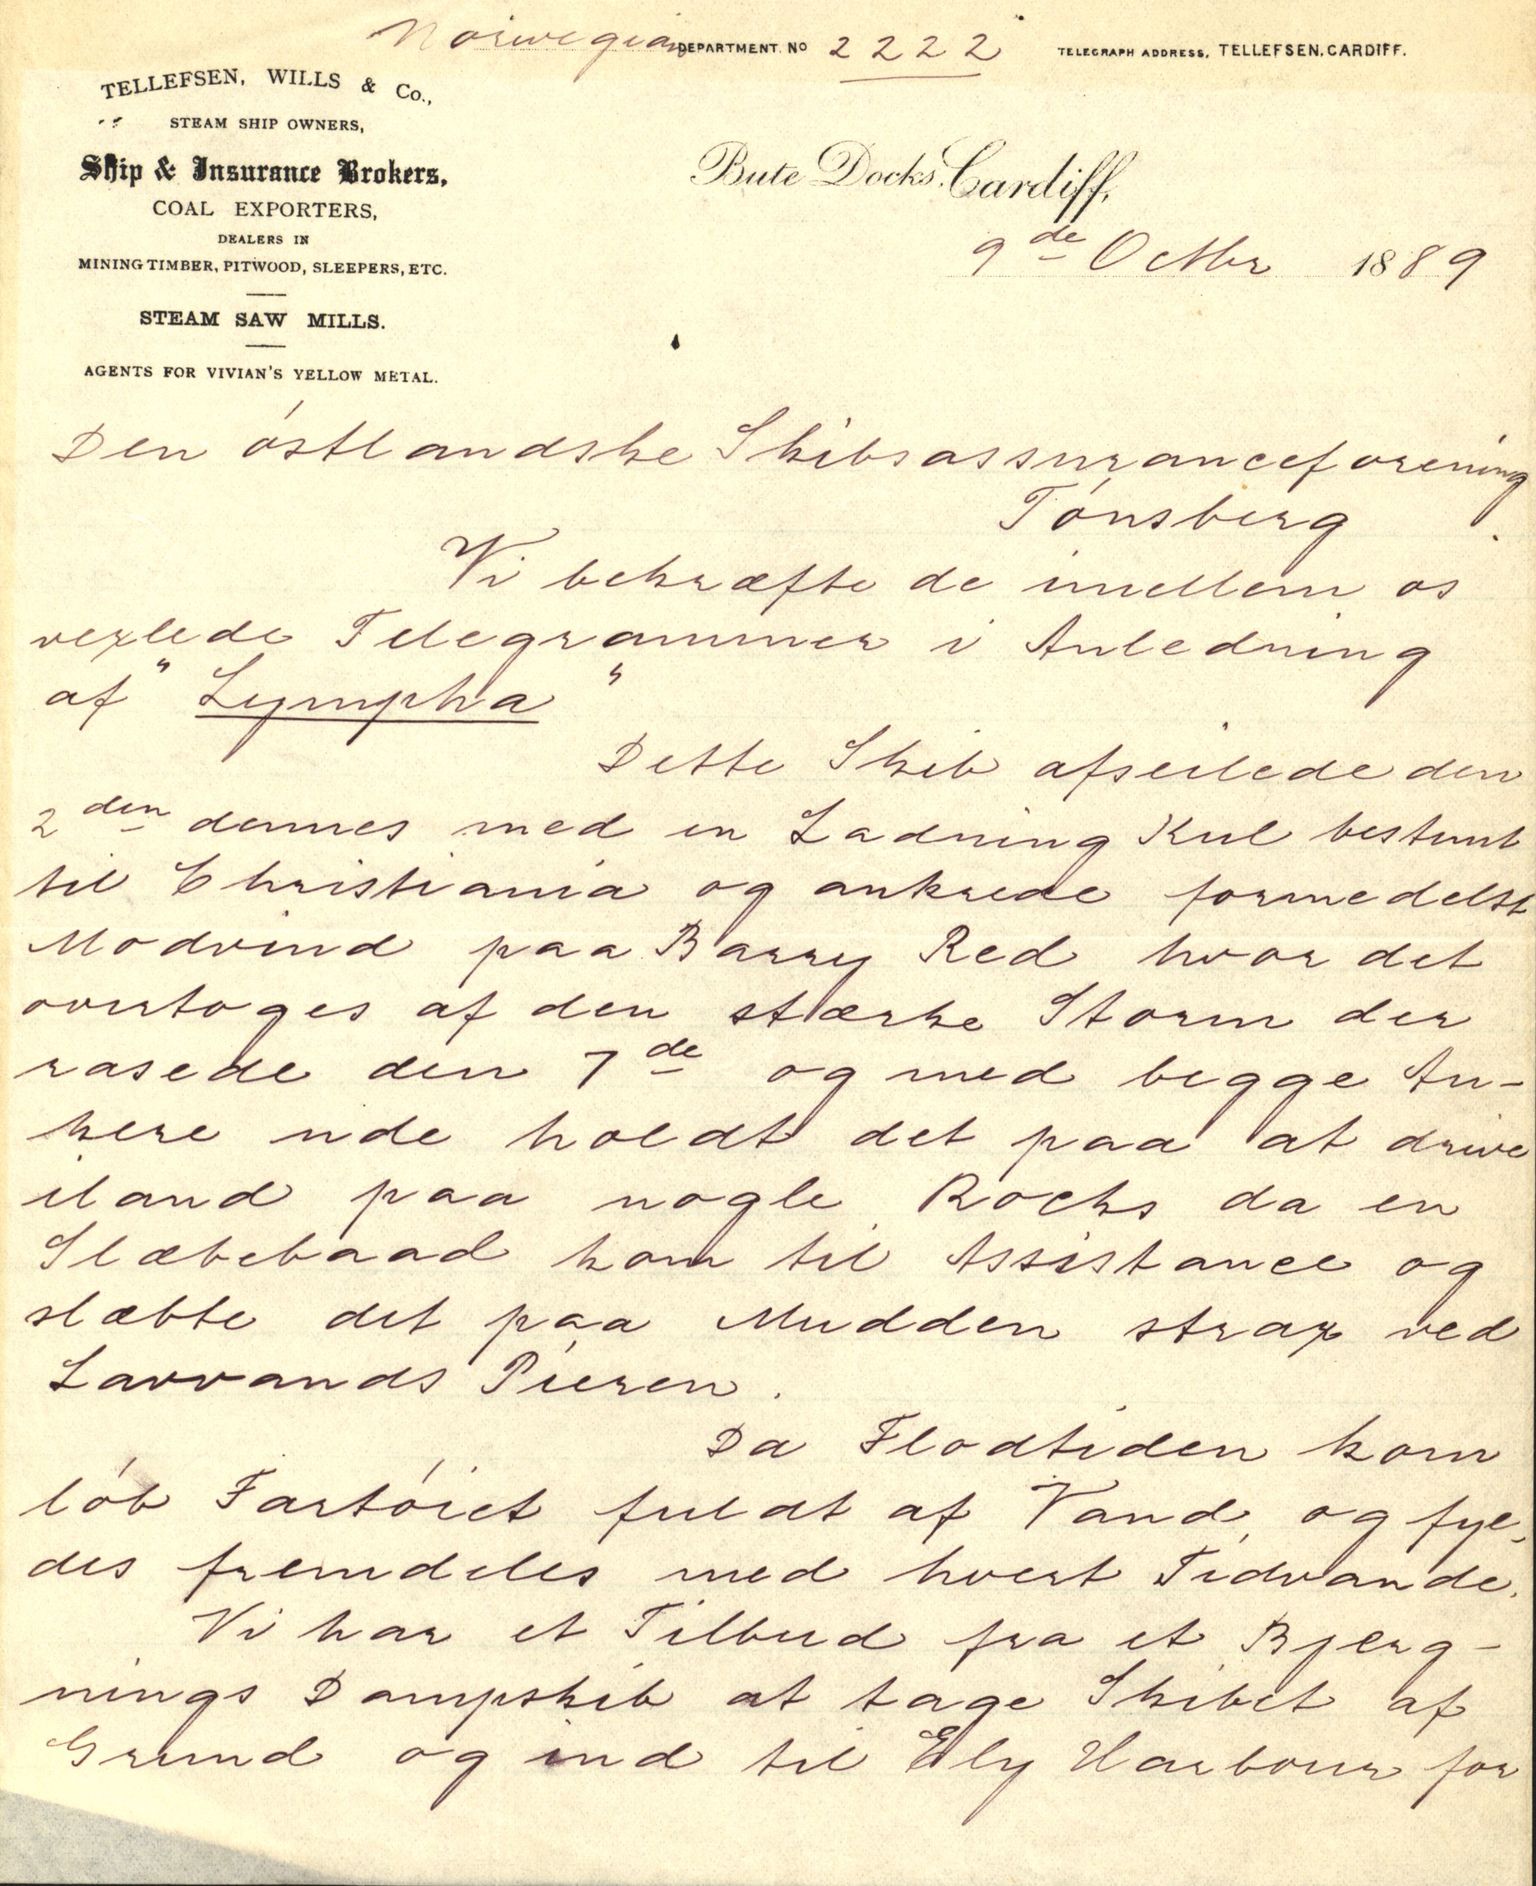 Norwegian DEPARTMENT. No 2222 TELEGRAPH ADDRESS, TELLEFSEN, CARDIFF.
TELLEFSEN, WILLS & Co.,
STEAM SHIP OWNERS,
Ship & Insurance Brokers,
COAL EXPORTERS,
DEALERS IN
MINING TIMBER, PITWOOD, SLEEPERS, ETC.
STEAM SAW MILLS.
AGENTS FOR VIVIAN'S YELLOW METAL.
Bute Docks, Cardiff,
9de Octbr 1889
Den óstlandske Skibsassuranceforening
Tónsberg.
Vi bekræfte de imellem os
vexlede Telegrammer i Anledning
af "Lympha"
Dette Skib afseilede den
2den dennes med en Ladning Kul bestemt
til Christiania og ankrede formedelst
Modvind paa Barry Red hvor det
overtoges af den stærke Storm der
rasede den 7de og med begge An-
kere ude holdt det paa at drive
iland paa nogle Rocks da en
Slæbebaad kom til Assistance og
slæbte det paa Mudden strax ved
Lavvands Pieren.
Da Flodtiden kom
lób Fartóiet fuldt af Vand, og fyl-
des fremdeles med hvert Tidvande.
Vi har et Tilbud fra et Bjerg-
nings Dampskib at tage Skibet af
Grund og ind til Ely Harbour for